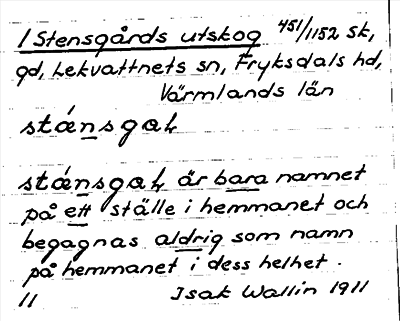 / Stensgårds utskog 451/1152 sk,
gd, Lekvattnets sn, Fryksdals hd,
Värmlands län
stánsgak
stánsgak är bara namnet
på ett ställe i hemmanet och
begagnas aldrig som namn
på hemmanet i dess helhet.
11 Isak Wallin 1911